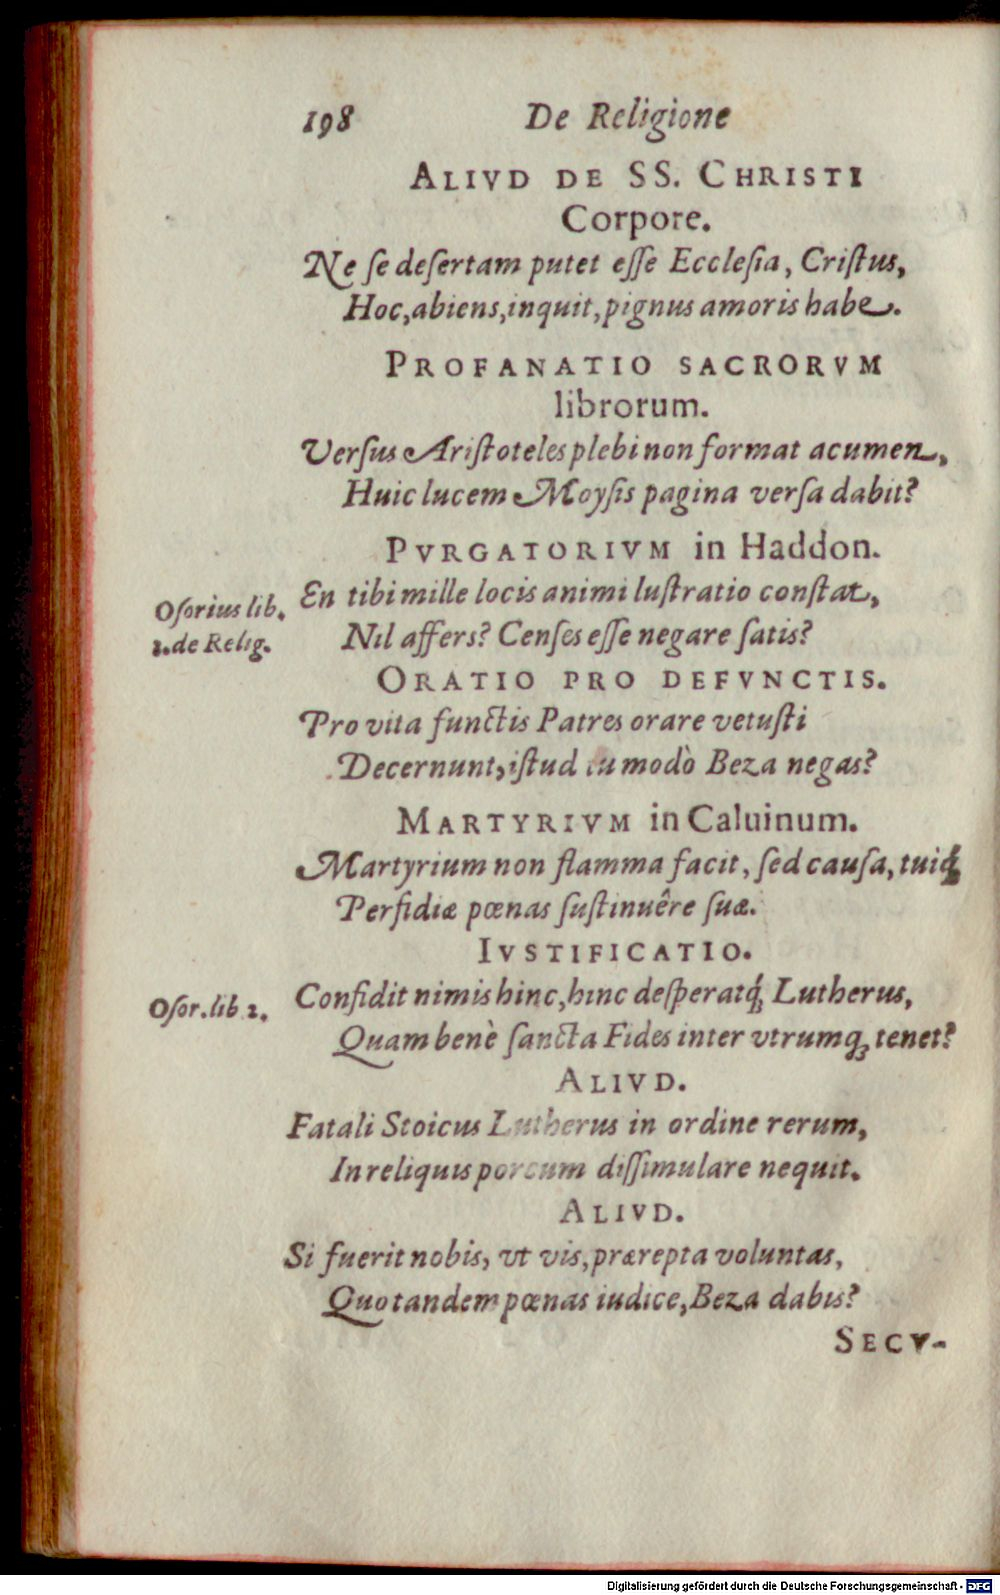 198 De Religione
ALIVD DE SS. CHRISTI
Corpore.
Ne se desertam putet esse Ecclesia, Cristus,
Hoc, abiens, inquit, pignus amoris habe.
PROFANATIO SACRORVM
librorum.
Versus Aristoteles plebi non format acumen,
Huic lucem Moysis pagina versa dabit?
PVRGATORIVM in Haddon.
En tibi mille locis animi lustratio constat,
Osorius lib.
Nil affers? Censes esse negare satis?
2. de Relig.
ORATIO PRO DEFVNCTIS.
Pro vita functis Patres orare vetusti
Decernunt, istud tu modò Beza negas?
MARTYRIVM in Caluinum.
Martyrium non flamma facit, sed causa, tuiq́;
Perfidiæ pœnas sustinuêre suæ.
IVSTIFICATIO.
Confidit nimis hinc, hinc desperatq́; Lutherus,
Osor. lib 2.
Quam benè sancta Fides inter vtrumq; tenet?
ALIVD.
Fatali Stoicus Lutherus in ordine rerum,
In reliquis porcum dissimulare nequit.
ALIVD.
Si fuerit nobis, vt vis, prærepta voluntas,
Quo tandem pœnas iudice, Beza dabis?
SECV-
Digitalisierung gefördert durch die Deutsche Forschungsgemeinschaft - DFG